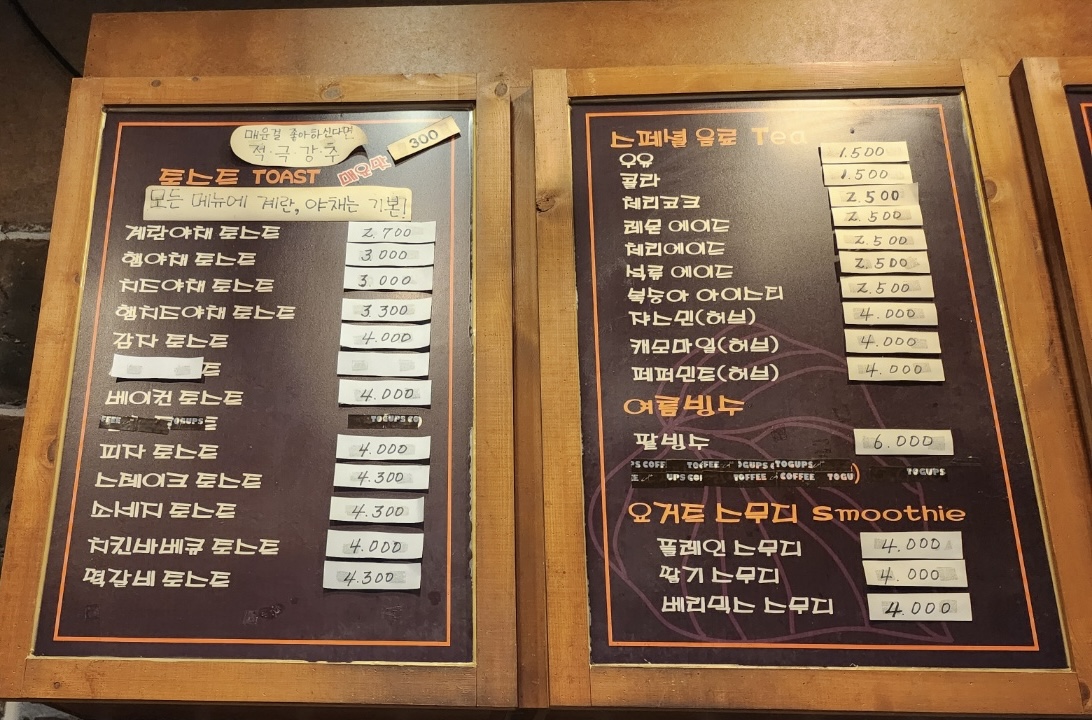 매운걸 좋아하신다면
적·극·강·추
매운맛 300
토스트 TOAST
모든 메뉴에 계란, 야채는 기본!
계란야채 토스트 2.700
햄야채 토스트 3.000
치즈야채 토스트 3.000
햄치즈야채 토스트 3.300
감자 토스트 4.000
트
베이컨 토스트 4.000
피자 토스트 4.000
스테이크 토스트 4.300
소세지 토스트 4.300
치킨바베큐 토스트 4.000
떡갈비 토스트 4.300
스페셜 음료 Tea
우유 1.500
콜라 1.500
체리코크 2.500
레몬 에이드 2.500
체리에이드 2.500
석류 에이드 2.500
복숭아 아이스티 2.500
쟈스민(허브) 4.000
캐모마일(허브) 4.000
페퍼민트(허브) 4.000
여름빙수
팥빙수 6.000
요거트 스무디 Smoothie
플레인 스무디 4.000
딸기 스무디 4.000
베리믹스 스무디 4.000